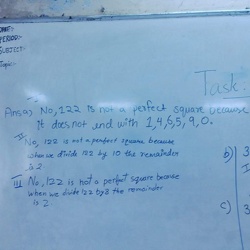 NAME:-
PERIOD:-
SUBJECT:-
Topic:-
Task:
Ans(a) No, 122 is not a perfect square because
it does not end with 1,4,6,5, 9, 0.
II No, 122 is not a perfect square because
when we divide 122 by 10 the remainder
is 2
III No, 122 is not a perfect square because
when we divide 122 by 8 the remainder
is 2
b) 3
I
c) 3